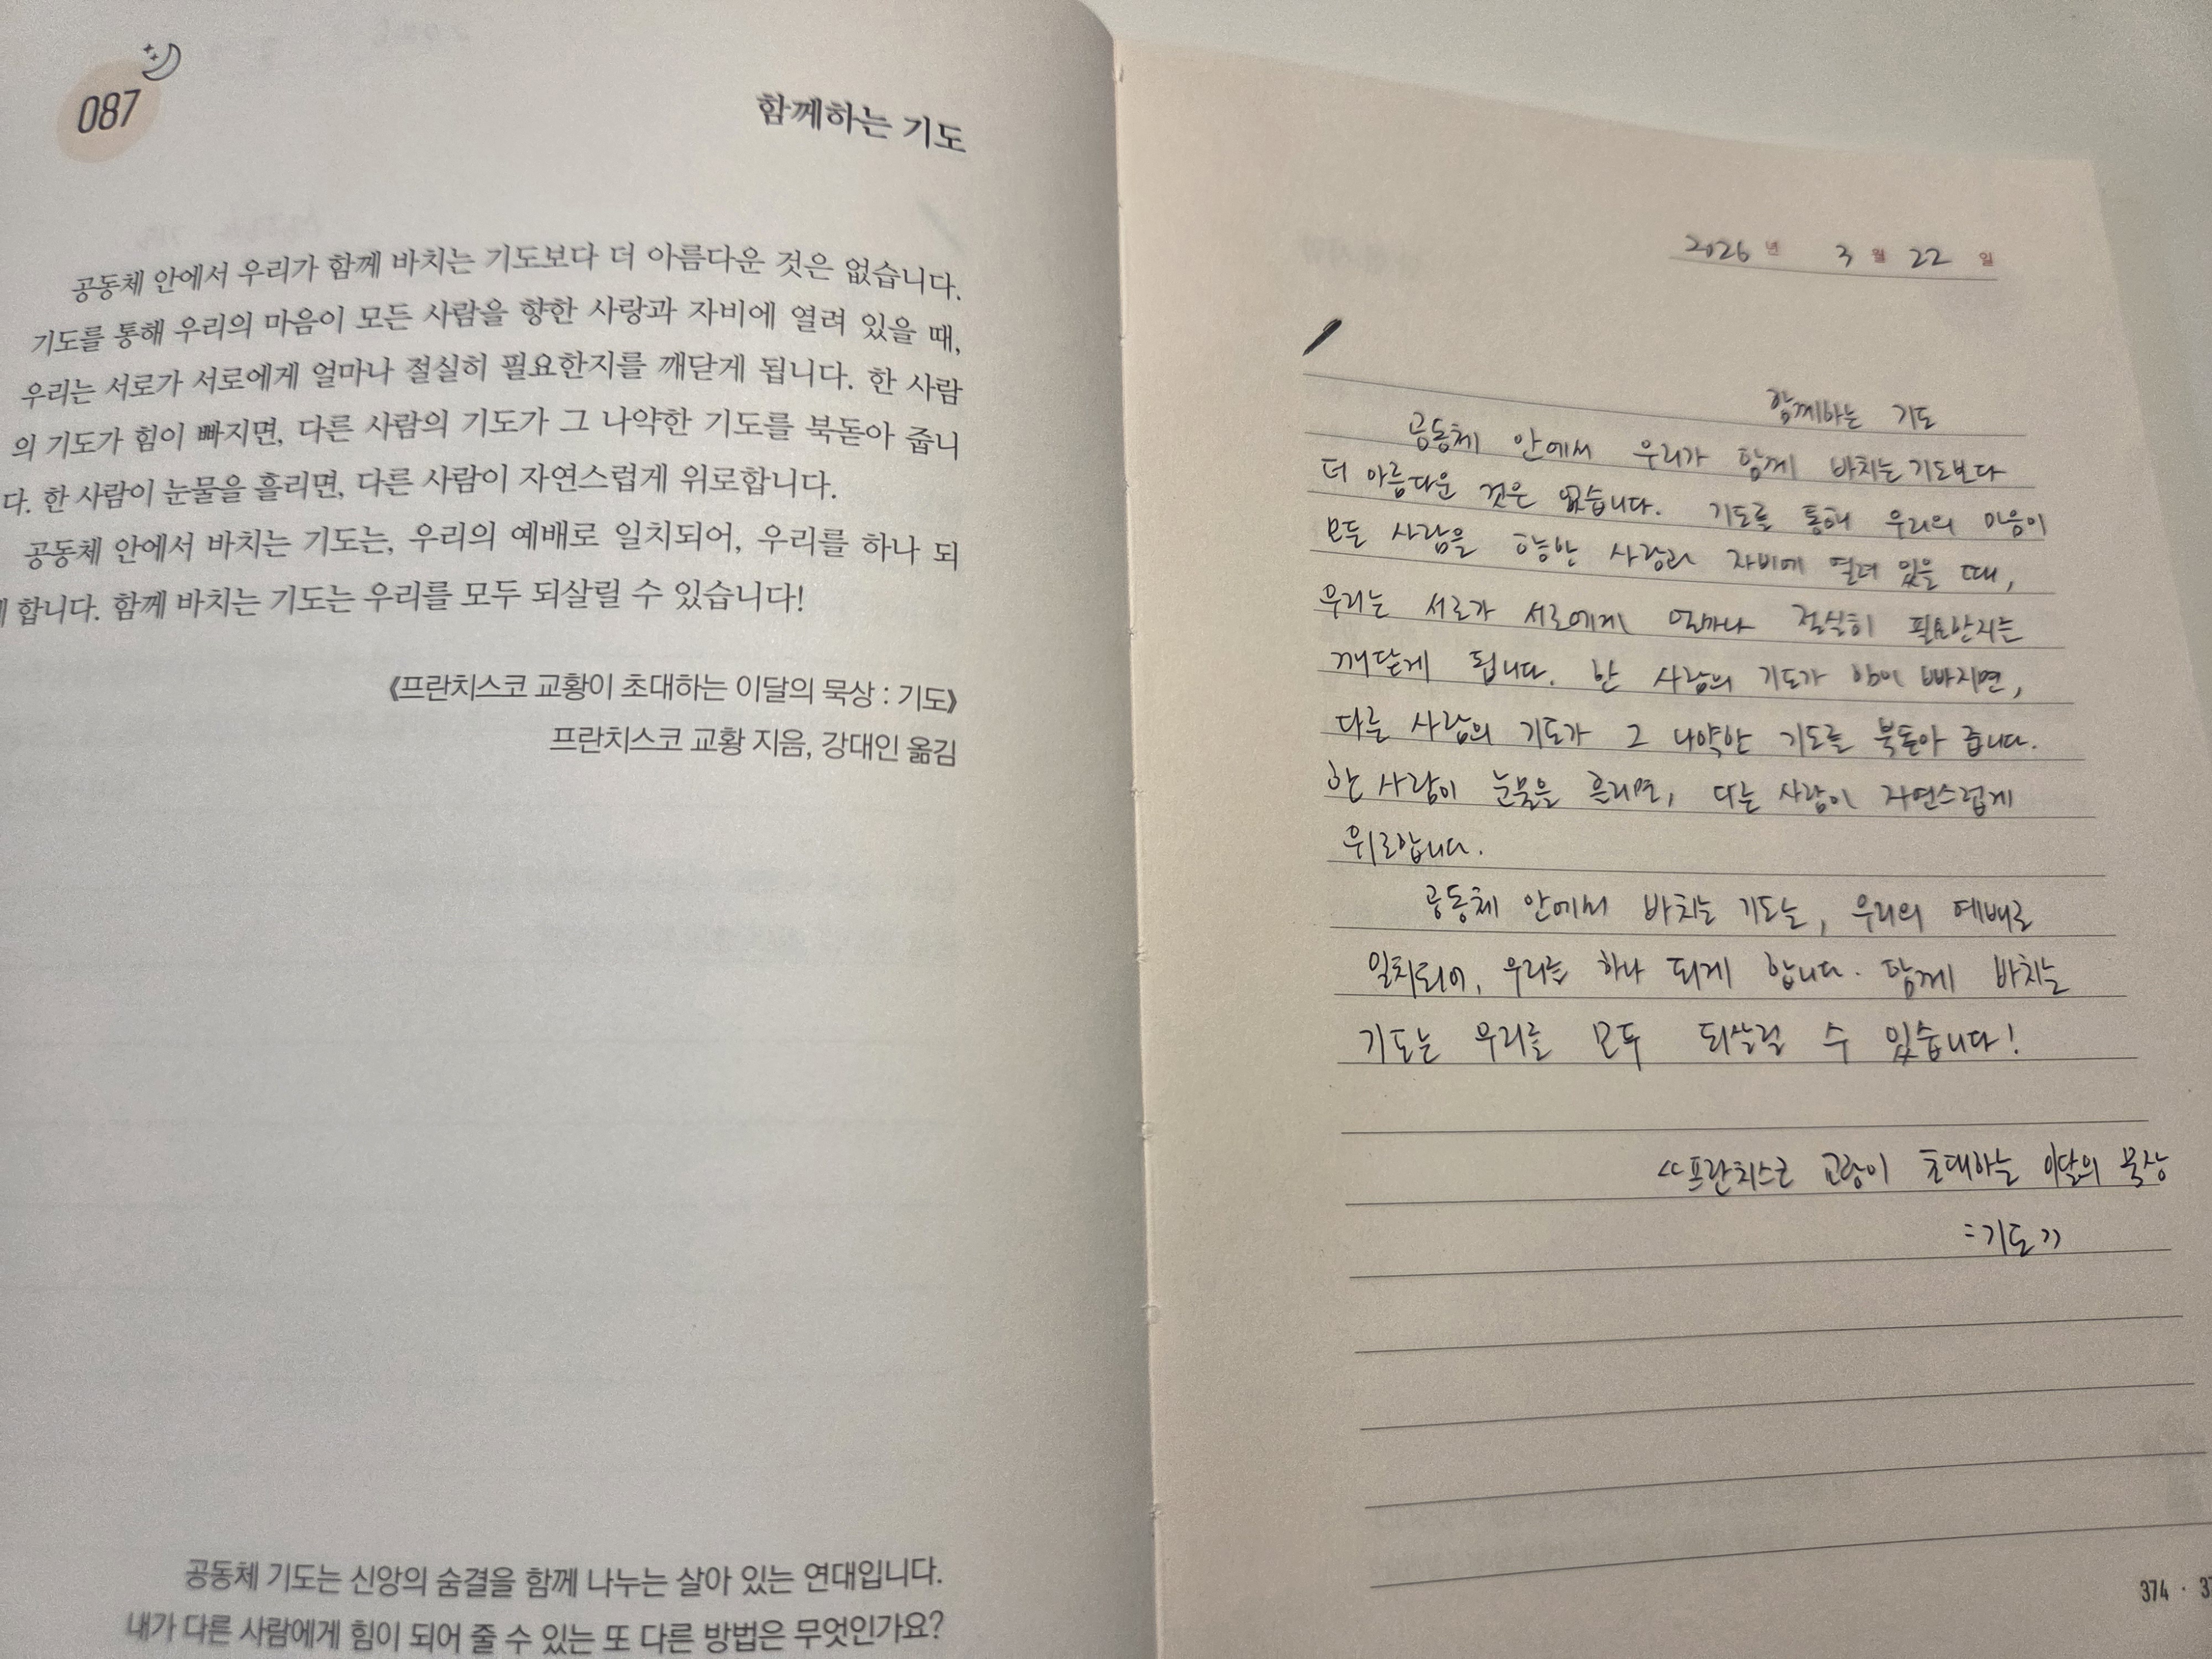 087
함께하는 기도
공동체 안에서 우리가 함께 바치는 기도보다 더 아름다운 것은 없습니다.
기도를 통해 우리의 마음이 모든 사람을 향한 사랑과 자비에 열려 있을 때,
우리는 서로가 서로에게 얼마나 절실히 필요한지를 깨닫게 됩니다. 한 사람
의 기도가 힘이 빠지면, 다른 사람의 기도가 그 나약한 기도를 북돋아 줍니
다. 한 사람이 눈물을 흘리면, 다른 사람이 자연스럽게 위로합니다.
공동체 안에서 바치는 기도는, 우리의 예배로 일치되어, 우리를 하나 되
합니다. 함께 바치는 기도는 우리를 모두 되살릴 수 있습니다!
《프란치스코 교황이 초대하는 이달의 묵상 : 기도》
프란치스코 교황 지음, 강대인 옮김
공동체 기도는 신앙의 숨결을 함께 나누는 살아 있는 연대입니다.
내가 다른 사람에게 힘이 되어 줄 수 있는 또 다른 방법은 무엇인가요?
2026 년 3 월 22 일
함께하는 기도
공동체 안에서 우리가 함께 바치는 기도보다
더 아름다운 것은 없습니다. 기도를 통해 우리의 마음이
모든 사람을 향한 사랑과 자비에 열려 있을 때,
우리는 서로가 서로에게 얼마나 절실히 필요한지는
깨닫게 됩니다. 한 사람의 기도가 힘이 빠지면,
다른 사람의 기도가 그 나약한 기도를 북돋아 줍니다.
한 사람이 눈물을 흘리면, 다른 사람이 자연스럽게
위로합니다.
공동체 안에서 바치는 기도는, 우리의 예배로
일치되어, 우리를 하나 되게 합니다. 함께 바치는
기도는 우리를 모두 되살릴 수 있습니다!
<<프란치스코 교황이 초대하는 이달의 묵상
: 기도>>
374 ·